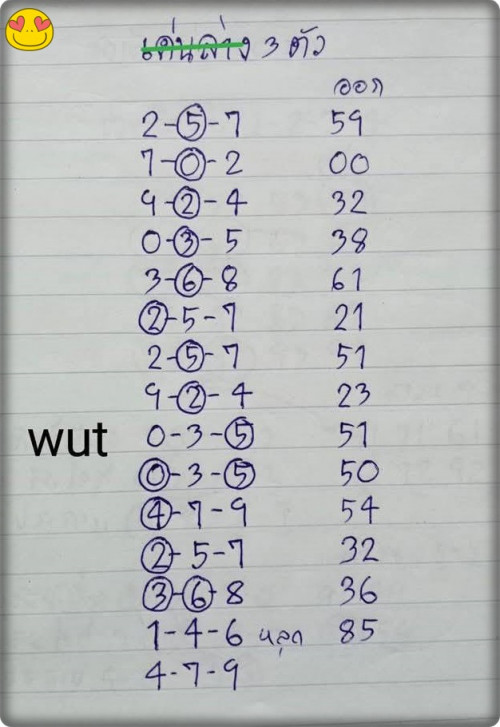 เด่นล่าง 3 ตัว
ออก
2-5-7 59
7-0-2 00
9-2-4 32
0-3-5 38
3-6-8 61
2-5-7 21
2-5-7 51
9-2-4 23
wut
0-3-5 51
0-3-5 50
4-7-9 54
2-5-7 32
3-6-8 36
1-4-6 หลุด 85
4-7-9